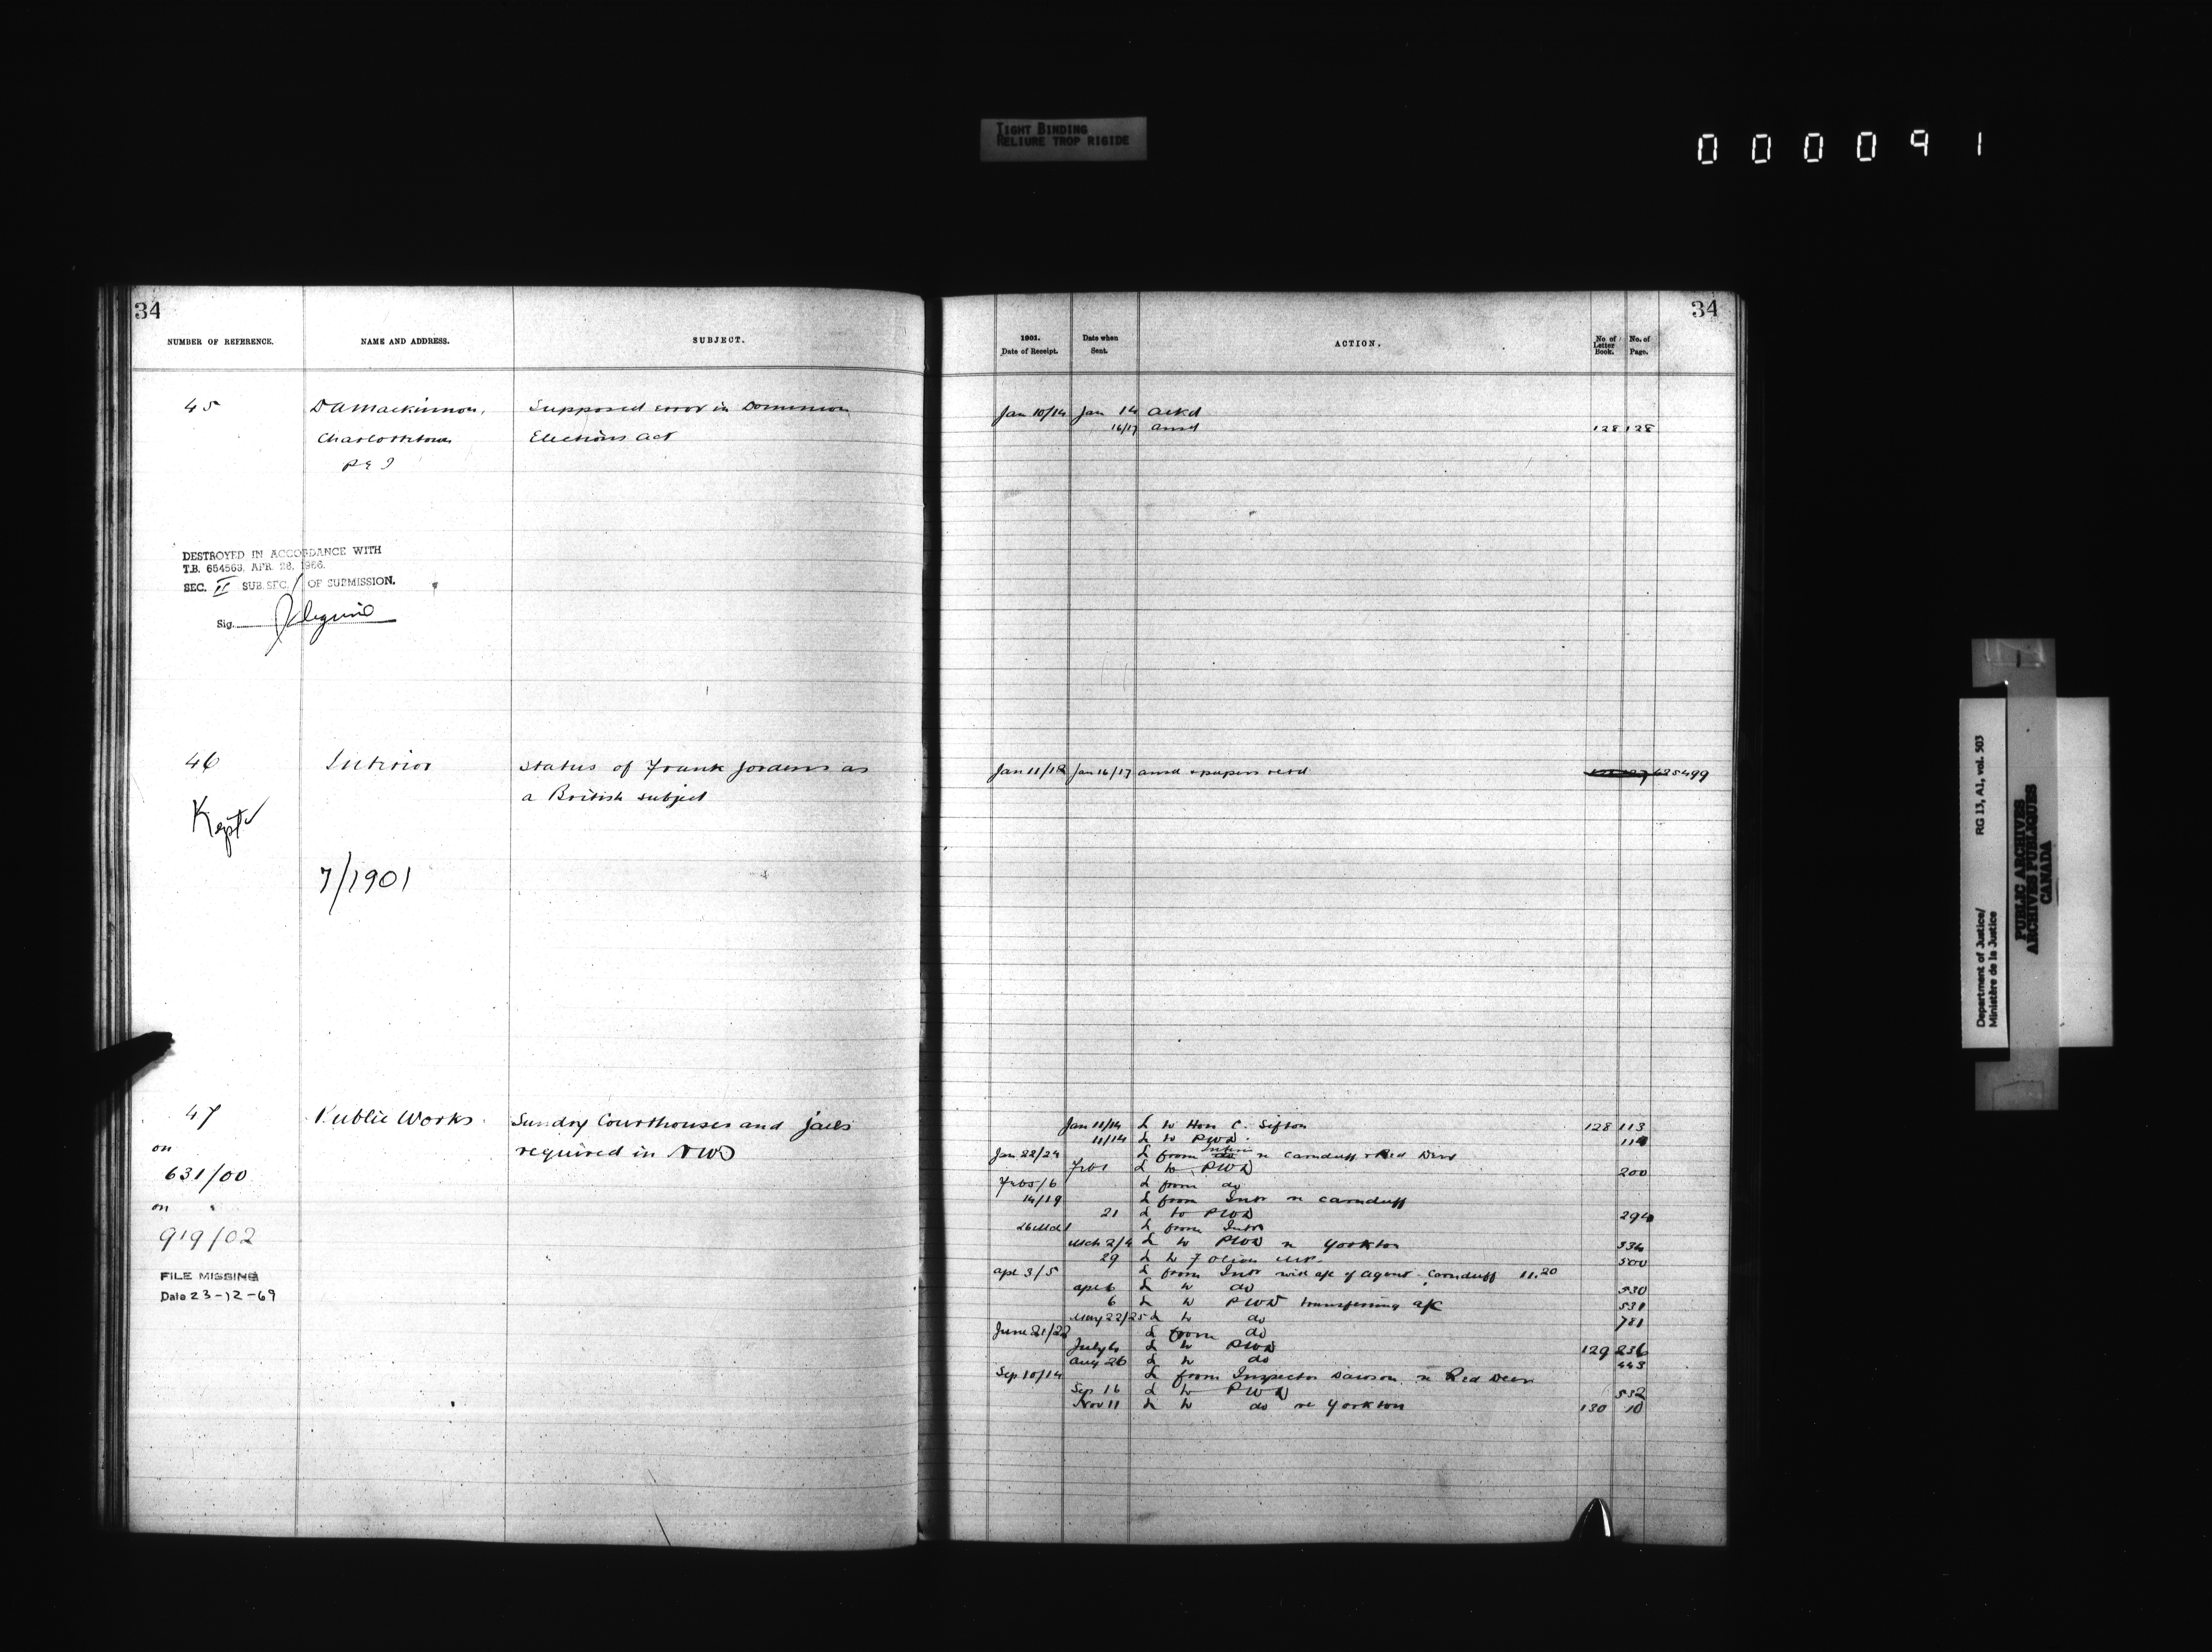 TIGHT BINDING
RELIURE TROP RIGIDE
000091
34
NUMBER OF REFERENCE.
NAME AND ADDRESS.
SUBJECT.
45
D A Mackinnon,
Supposed error in Dominion
Charlottetown
Elections Act
P E I
DESTROYED IN ACCORDANCE WITH
T.B. 654563, APR. 28, 1966.
SEC. II SUB.SEC. 1 OF SUBMISSION.
Sig.
46
Interior
Status of Frank Jordens as
a British subject
Kept
7/1901
47
Public Works
Sundry Courthouses and jails
required in NWT
on
631/00
on
919/02
FILE MISSING
Date 23-12-69
34
1901.
Date of Receipt.
Date when
Sent.
ACTION.
No of
Letter
Book.
No. of
Page.
Jan 10/14 Jan 14 ackd
16/17 ansd 128 128
Jan 11/12 Jan 16/17 ansd & papers retd
Jan 11/14 L to Hon C. Sifton 128 113
11/14 L to PWD.
Jan 22/24 L from Interior re Carnduff & Red Deer
L to PWD 200
L from do
14/19 L from Intr re Carnduff
21 L to PWD 294
L from Intr
Mch 2/4 L to PWD re Yorkton 334
29 L to F Oliver MP. 500
Apl 3/5 L from Intr with a/c of agent Carnduff 11.20
Apl 6 L to do 530
6 L to PWD transferring a/c 531
May 22/25 L to do 781
June 21/22 L from do
July 6 L to PWD 129 236
Aug 26 L to do 443
Sep 10/14 L from Inspector Dawson re Red Deer
Sep 16 L to PWD 532
Nov 11 L to do re Yorkton 130 10
Department of Justice/
Ministère de la Justice
RG 13, A1, vol. 503
PUBLIC ARCHIVES
ARCHIVES PUBLIQUES
CANADA